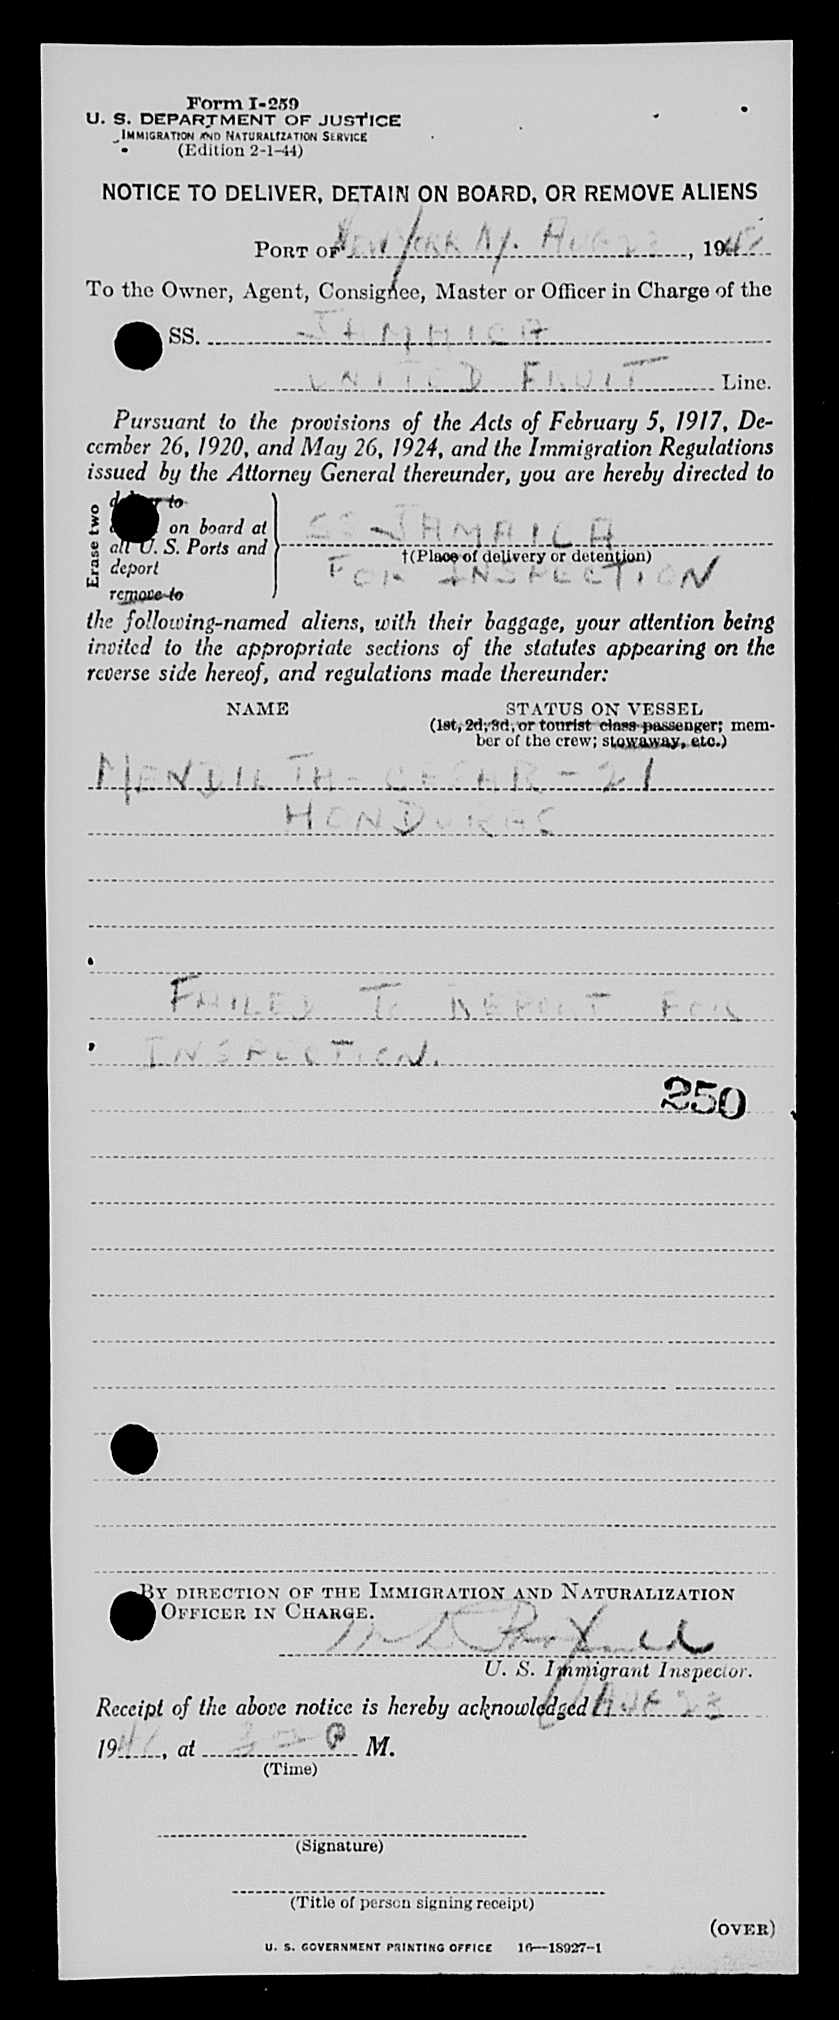 Form I-259
U. S. DEPARTMENT OF JUSTICE
IMMIGRATION AND NATURALIZATION SERVICE
(Edition 2-1-44)
NOTICE TO DELIVER, DETAIN ON BOARD, OR REMOVE ALIENS
PORT OF New York Ny. AUG 23, 194
To the Owner, Agent, Consignee, Master or Officer in Charge of the
SS. JAMAICA
UNITED FRUIT Line.
Pursuant to the provisions of the Acts of February 5, 1917, De-
cember 26, 1920, and May 26, 1924, and the Immigration Regulations
issued by the Attorney General thereunder, you are hereby directed to
Erase two
deliver to
on board at
all U. S. Ports and
deport
remove to
SS JAMAICA
†(Place of delivery or detention)
FOR INSPECTION
the following-named aliens, with their baggage, your attention being
invited to the appropriate sections of the statutes appearing on the
reverse side hereof, and regulations made thereunder:
NAME STATUS ON VESSEL
(1st, 2d, 3d, or tourist class passenger; mem-
ber of the crew; stowaway, etc.)
CESAR - 21
HONDURAS
FAILED TO REPORT FOR
INSPECTION.
250
BY DIRECTION OF THE IMMIGRATION AND NATURALIZATION
OFFICER IN CHARGE.
U. S. Immigrant Inspector.
Receipt of the above notice is hereby acknowledged AUG 23
194, at P M.
(Time)
(Signature)
(Title of person signing receipt)
(OVER)
U. S. GOVERNMENT PRINTING OFFICE 16—18927-1